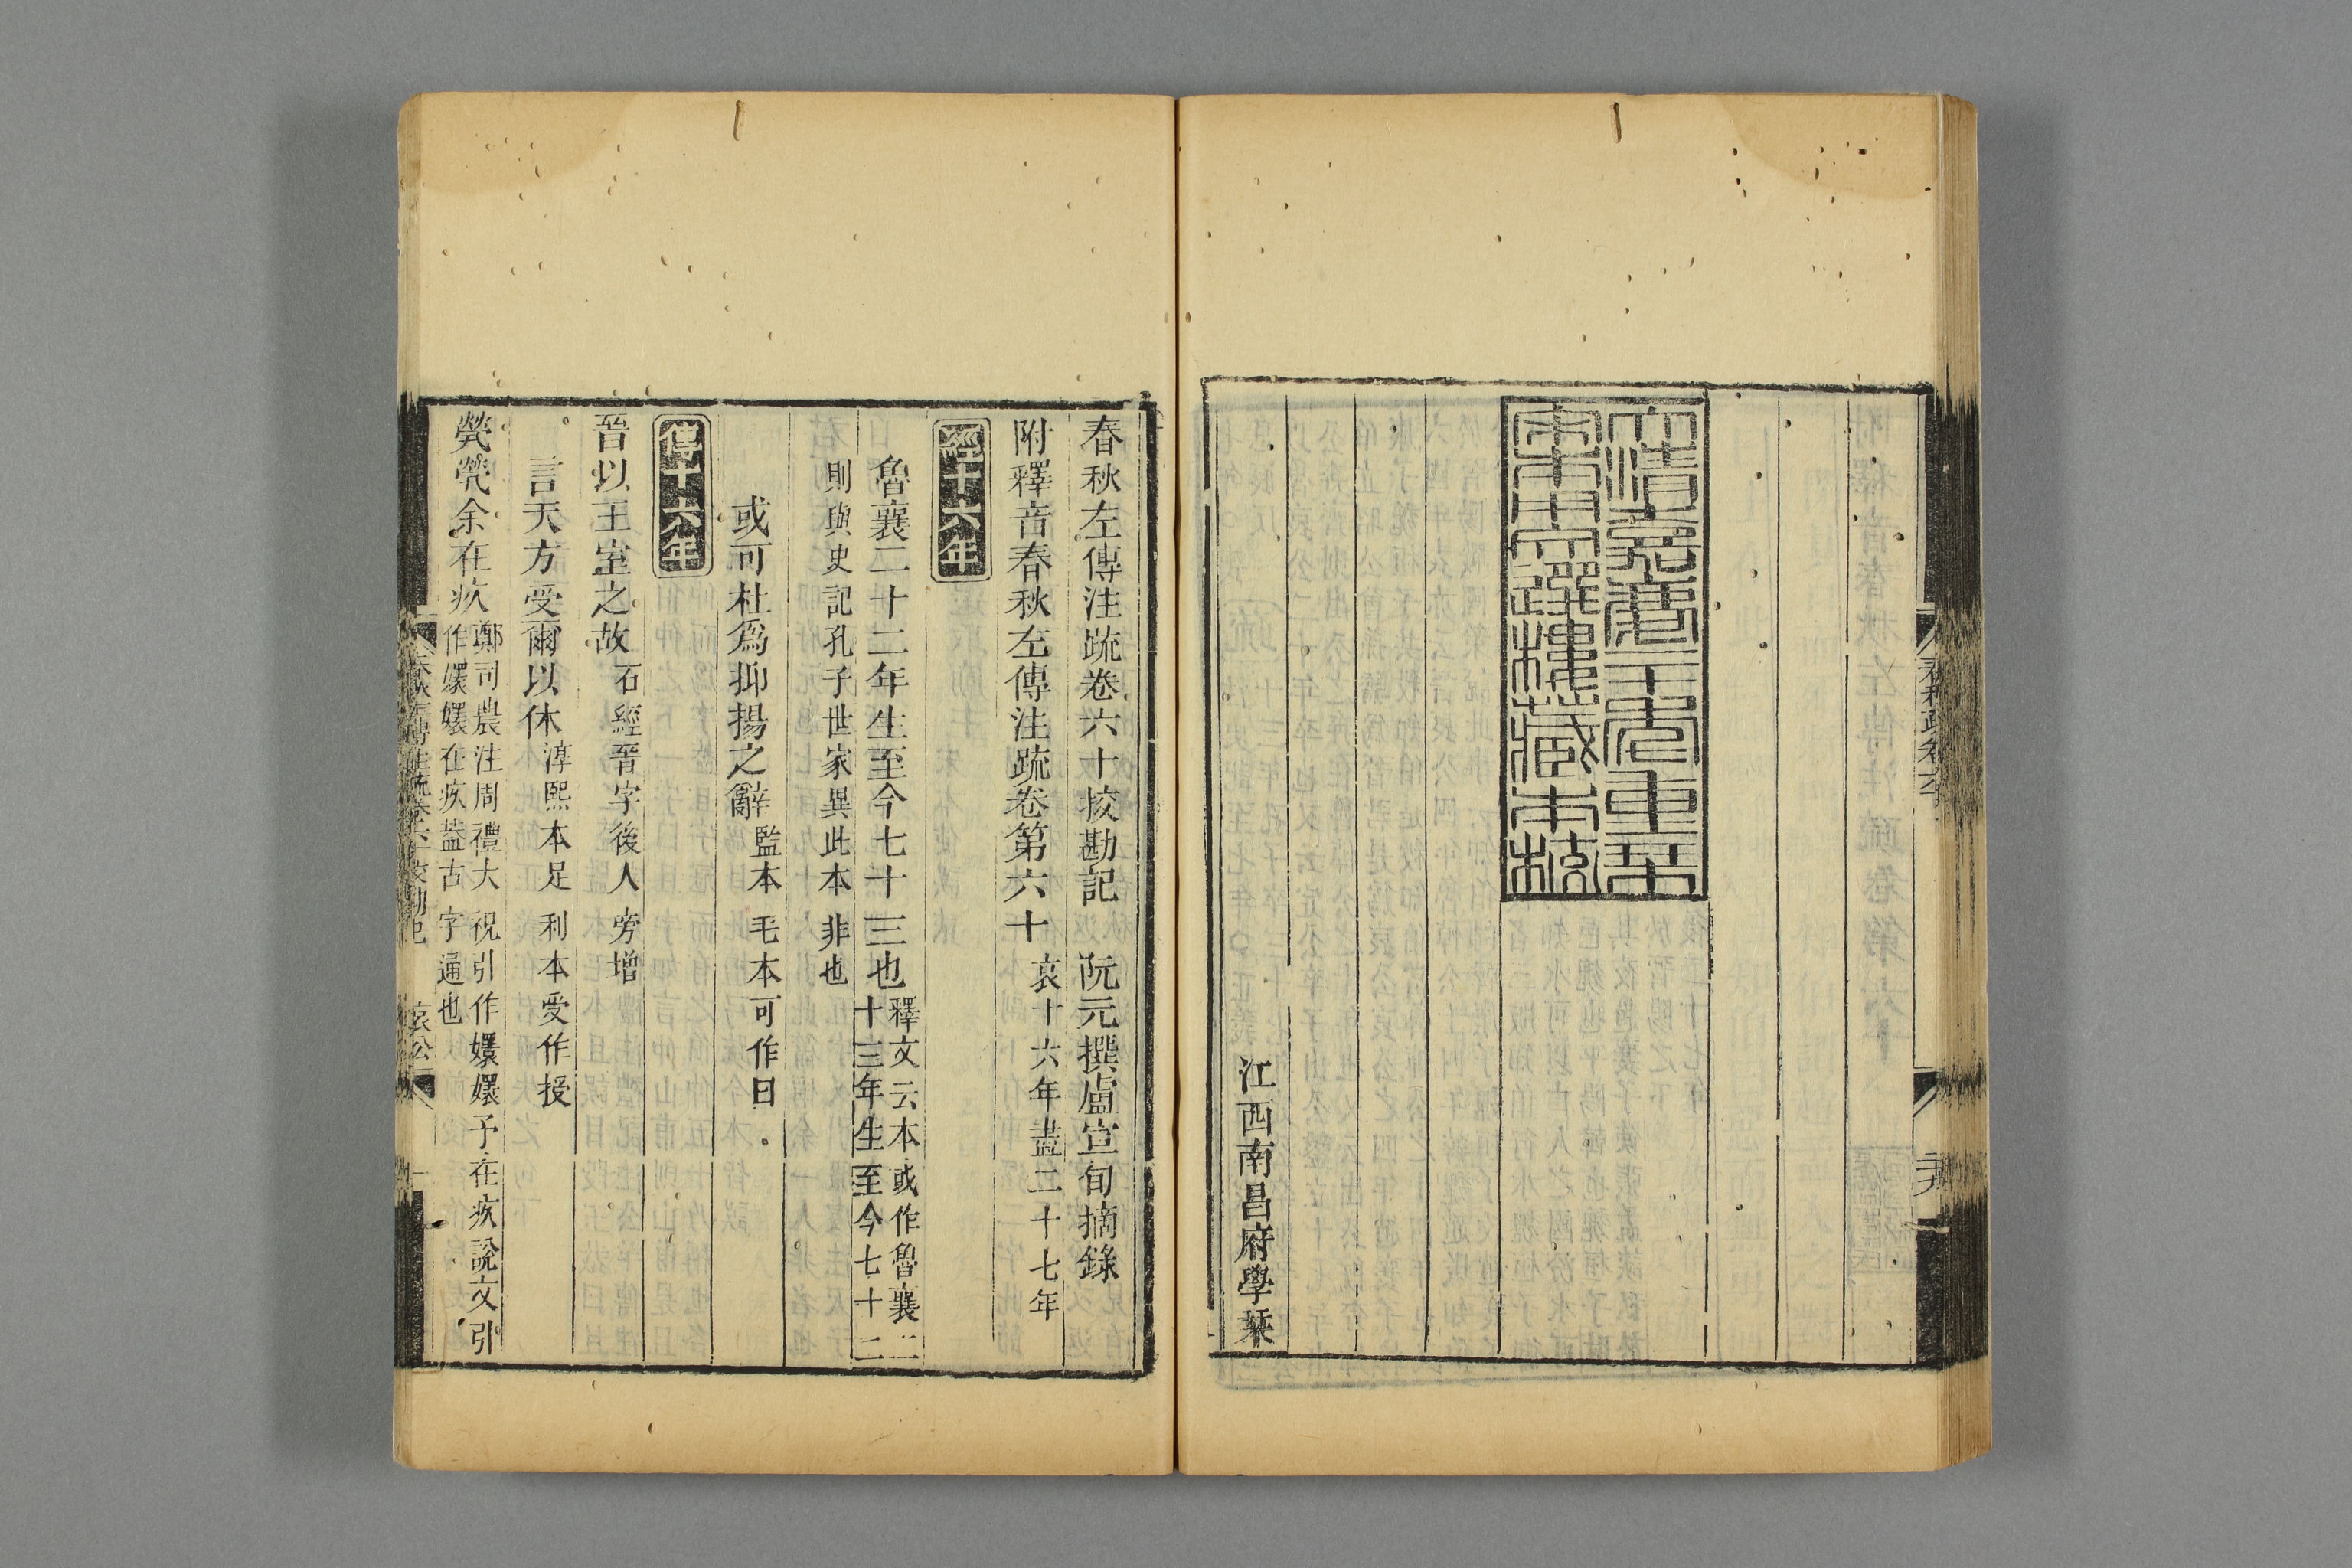 大清嘉慶二十年重栞
宋本用文選樓藏本校
江西南昌府學栞
春秋左傳注疏卷六十挍勘記　阮元撰盧宣旬摘錄
附釋音春秋左傳注疏卷第六十　哀十六年盡二十七年
經十六年
魯襄二十二年生至今七十三也　釋文云本或作魯襄二
十三年生至今七十二
則與史記孔子世家異此本非也
或可杜爲抑揚之辭　監本毛本可作曰。
傳十六年
晉以王室之故　石經晉字後人旁增
言天方受爾以休　淳熙本足利本受作授
煢煢余在疚　鄭司農注周禮大祝引作嬛嬛予在疚說文引
作嬛嬛在疚葢古字通也
春秋左傳注疏卷六十挍勘記　哀公　一